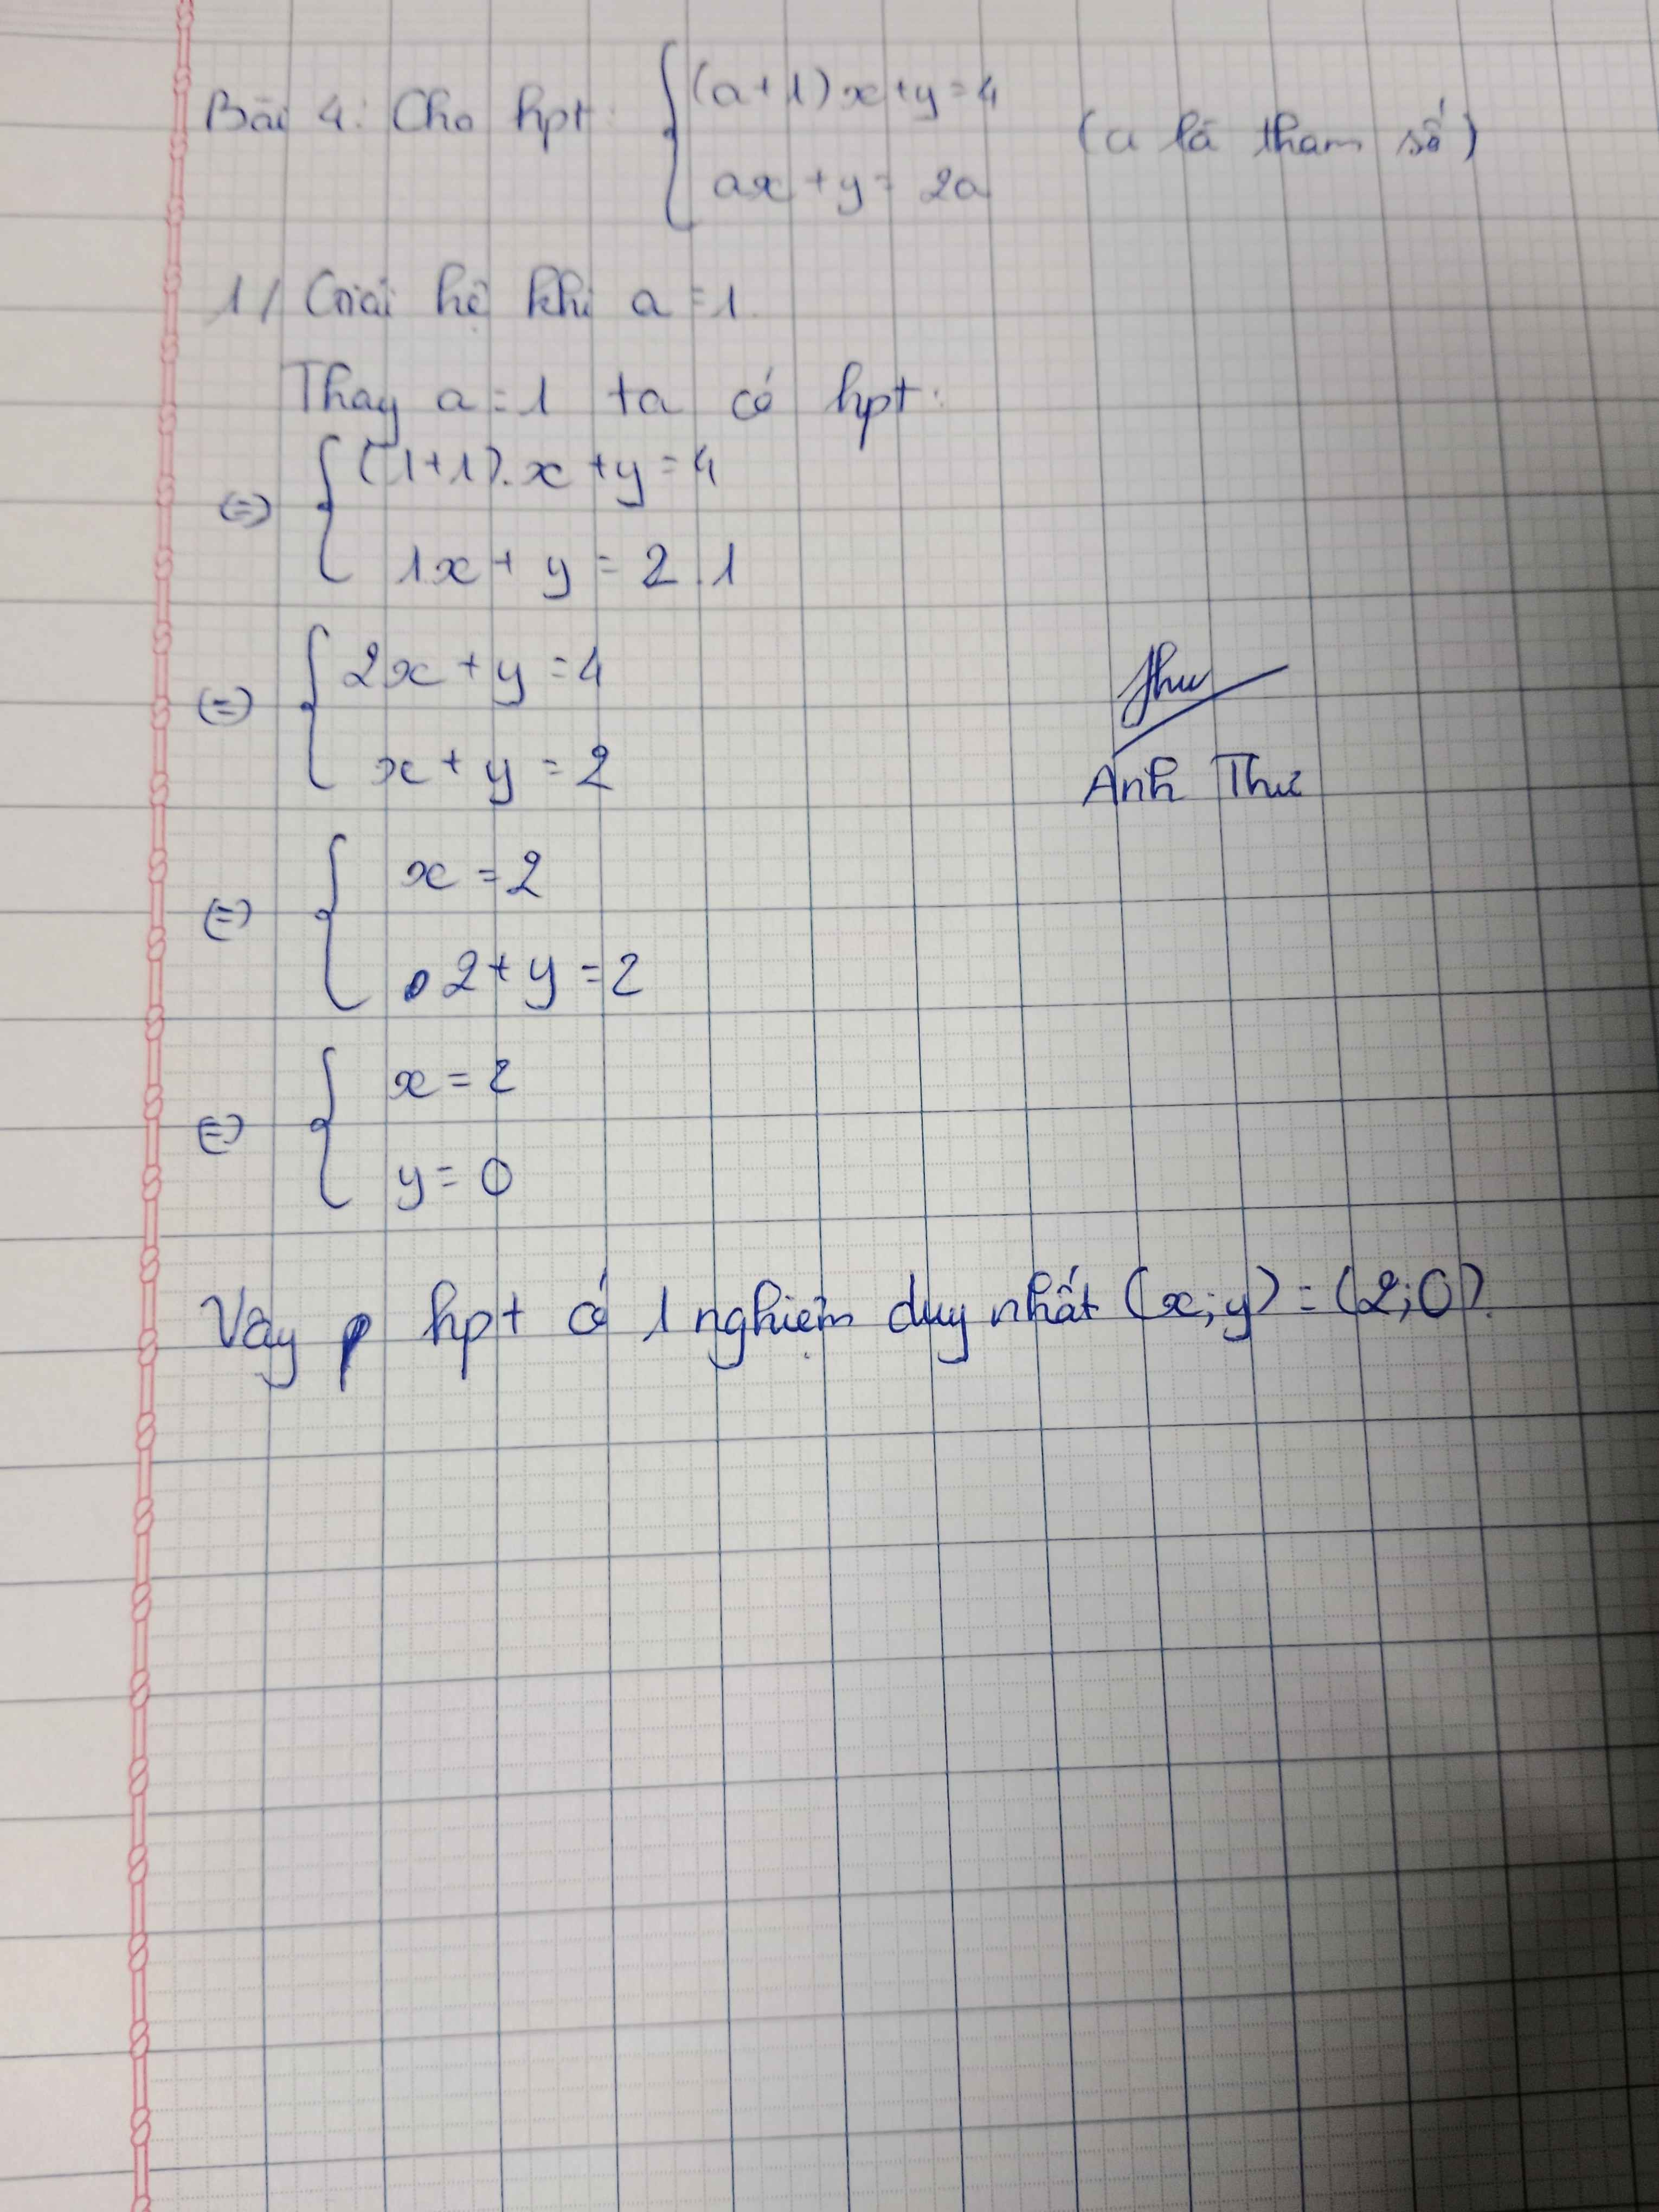 Bài 4: Cho hpt: { (a+1)x+y=4
ax+y=2a (a là tham số)
1/ Giải hệ khi a=1.
Thay a=1 ta có hpt:
(=) { (1+1).x+y=4
1x+y=2.1
(=) { 2x+y=4
x+y=2
Thư
Anh Thư
(=) { x=2
2+y=2
(=) { x=2
y=0
Vay hpt có 1 nghiệm duy nhất (x;y)=(2;0).